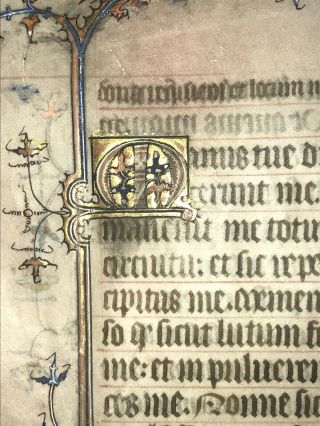 Manus tue d
cerunt me.
mauerunt me totu
circuitu: et sic repe
cipitas me. memen
so sicut lutum f
me: et in pulueren
ces me. Nonne sic